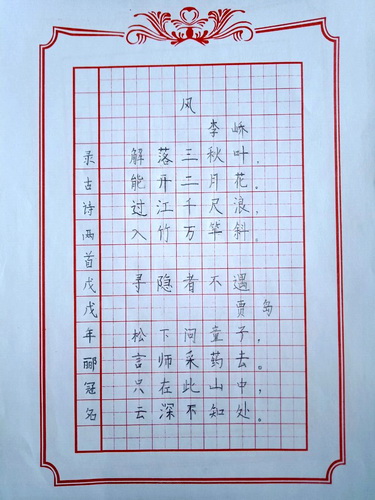 风
李峤
解落三秋叶，
能开二月花。
过江千尺浪，
入竹万竿斜。
寻隐者不遇
贾岛
松下问童子，
言师采药去。
只在此山中，
云深不知处。
录古诗两首戊戌年郦冠名